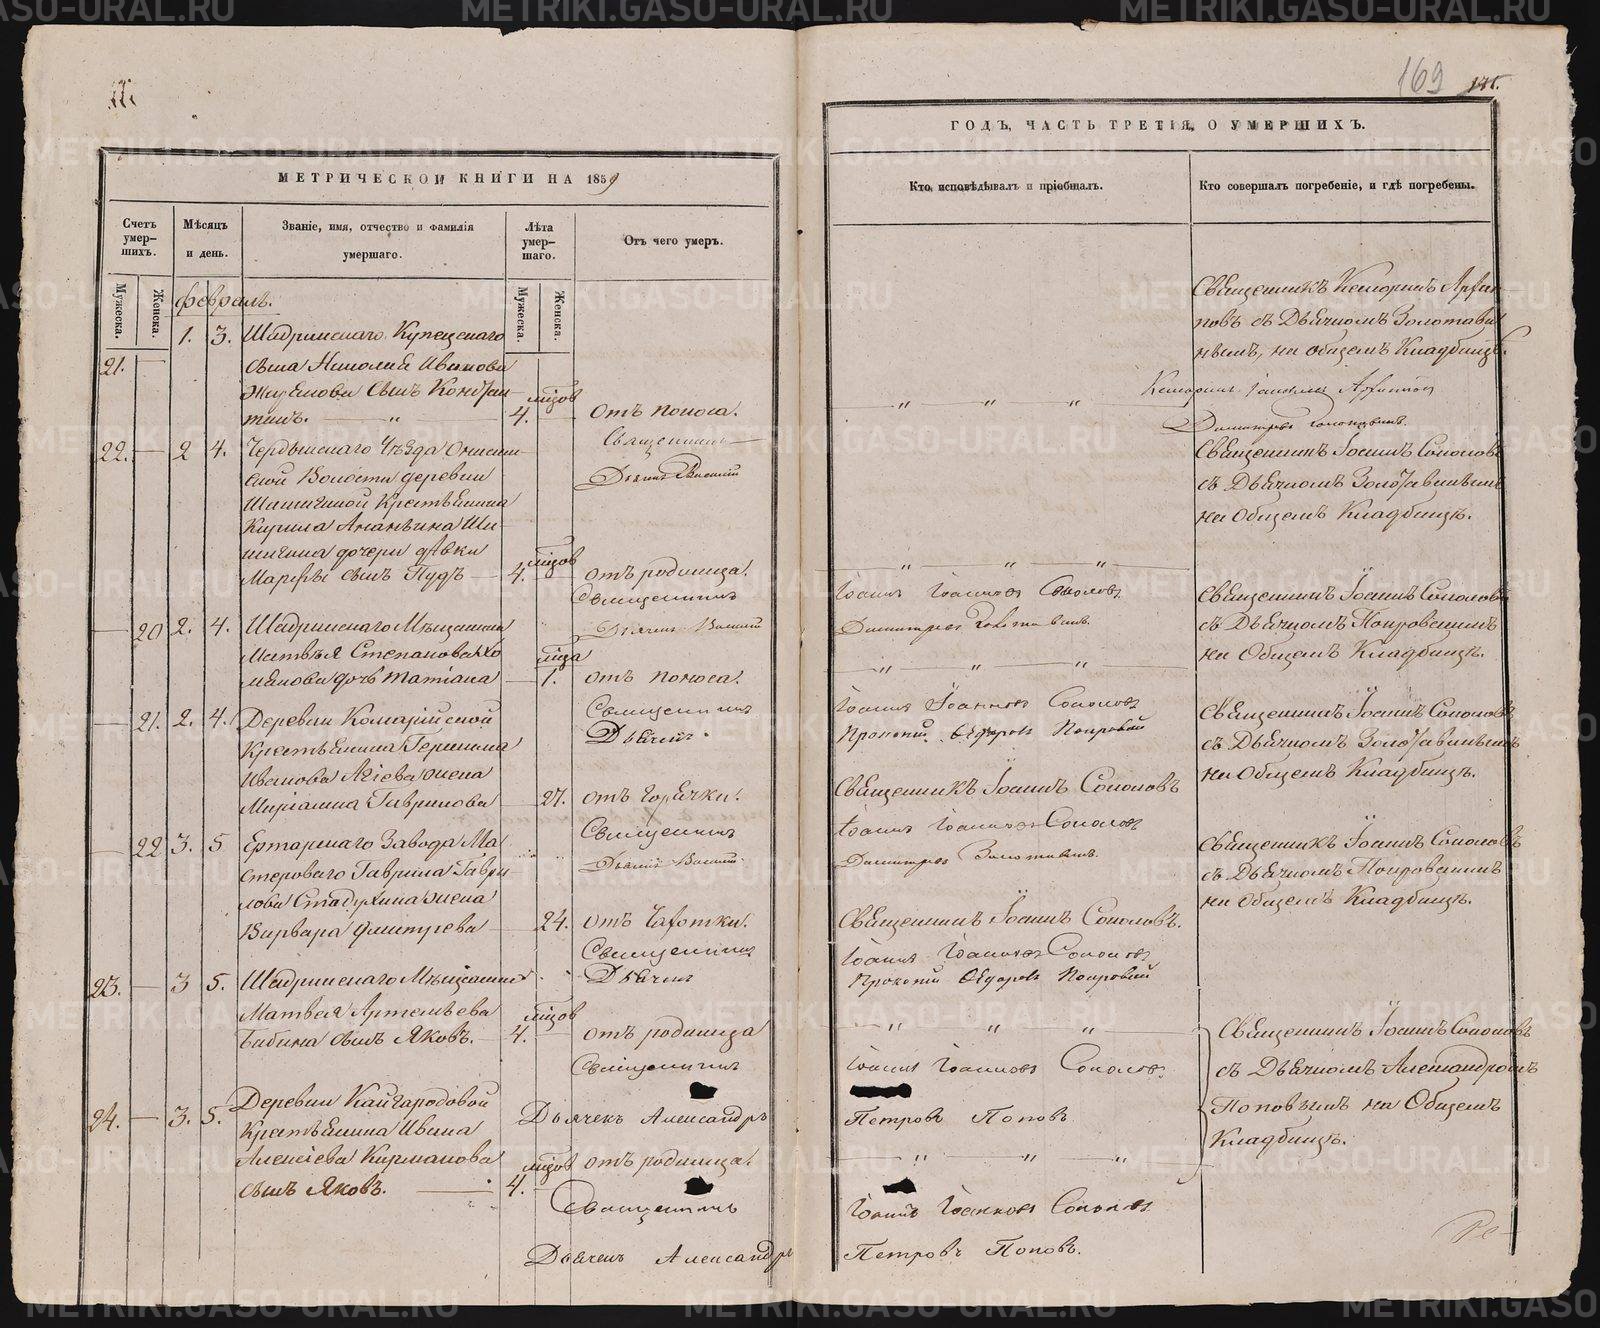 169 171.
МЕТРИЧЕСКОЙ КНИГИ НА 1859
ГОДЪ, ЧАСТЬ ТРЕТІЯ, О УМЕРШИХЪ.
Счетъ умер-
шихъ.
Мужеска.
Женска.
Мѣсяцъ
и день.
Званіе, имя, отчество и фамилія
умершаго.
Лѣта
умер-
шаго.
Мужеска.
Женска.
Отъ чего умеръ.
Кто исповѣдывалъ и пріобщалъ.
Кто совершалъ погребеніе, и гдѣ погребены.
Февраль.
21. — 1. 3. Шадринскаго Купеческаго
сына Николая Иванова
сынъ Констан-
тинъ. — „
мѣсцов
4. — отъ поноса.
Священникъ
Дьячекъ
— „ „ „
Священникъ
повъ съ Дьячкомъ Золотави
нымъ, на общемъ Кладбищѣ.
22. — 2 4. Чердынскаго Уѣзда
ской Волости деревни
Шишигиной Крестьянина
Кирила Ананьина Ши-
шигина дочери дѣвки
Марѳы сынъ Пудъ — 4. — отъ родимца.
Священникъ
— „ „ „
Іоаннъ Іоанновъ Соколовъ
Священникъ Іоаннъ Соколовъ
съ Дьячкомъ Золотавинымъ
на Общемъ Кладбищѣ.
— 20 2. 4. Шадринскаго Мѣщанина
Матвѣя Степанова Хо
мякова дочь Татіана — 1. отъ поноса.
Священникъ
Дьячекъ.
— „ „ „
Іоаннъ Іоанновъ Соколовъ
Прокопій Ѳедоровъ Покровскій
Священникъ Іоаннъ Соколовъ
съ Дьячкомъ Покровскимъ
на Общемъ Кладбищѣ.
— 21. 2. 4. Деревни
Крестьянина Герасима
Иванова жена
Маріамна Гаврилова — 27. отъ горячки.
Священникъ
Священникъ Іоаннъ Соколовъ
Іоаннъ Іоанновъ Соколовъ
Священникъ Іоаннъ Соколовъ
съ Дьячкомъ Золотавинымъ
на Общемъ Кладбищѣ.
— 22 3. 5 Завода Ма
стероваго Гаврила Гаври
лова жена
Варвара Дмитрева — 24. отъ Чахотки.
Священникъ
Дьячекъ
Священникъ Іоаннъ Соколовъ.
Іоаннъ Іоанновъ Соколовъ
Прокопій Ѳедоровъ Покровскій
Священникъ Іоаннъ Соколовъ
съ Дьячкомъ Покровскимъ
на Общемъ Кладбищѣ.
23. — 3 5. Шадринскаго Мѣщанина
Матвея Артемьева
Бабина сынъ Яковъ. — 4. — отъ родимца
Священникъ
Дьячекъ Александръ
— „ „ „
Іоаннъ Іоанновъ Соколовъ
Петровъ Поповъ
Священникъ Іоаннъ Соколовъ
съ Дьячкомъ Александромъ
Поповымъ на Общемъ
Кладбищѣ.
24. — 3. 5. Деревни Кайгародовой
Крестьянина Ивана
Алексіева Кирманова
сынъ Яковъ. — 4. отъ родимца.
Священникъ
Дьячекъ Александръ
— „ „ „
Іоаннъ Іоанновъ Соколовъ
Петровъ Поповъ.
METRIKI.GASO-URAL.RU